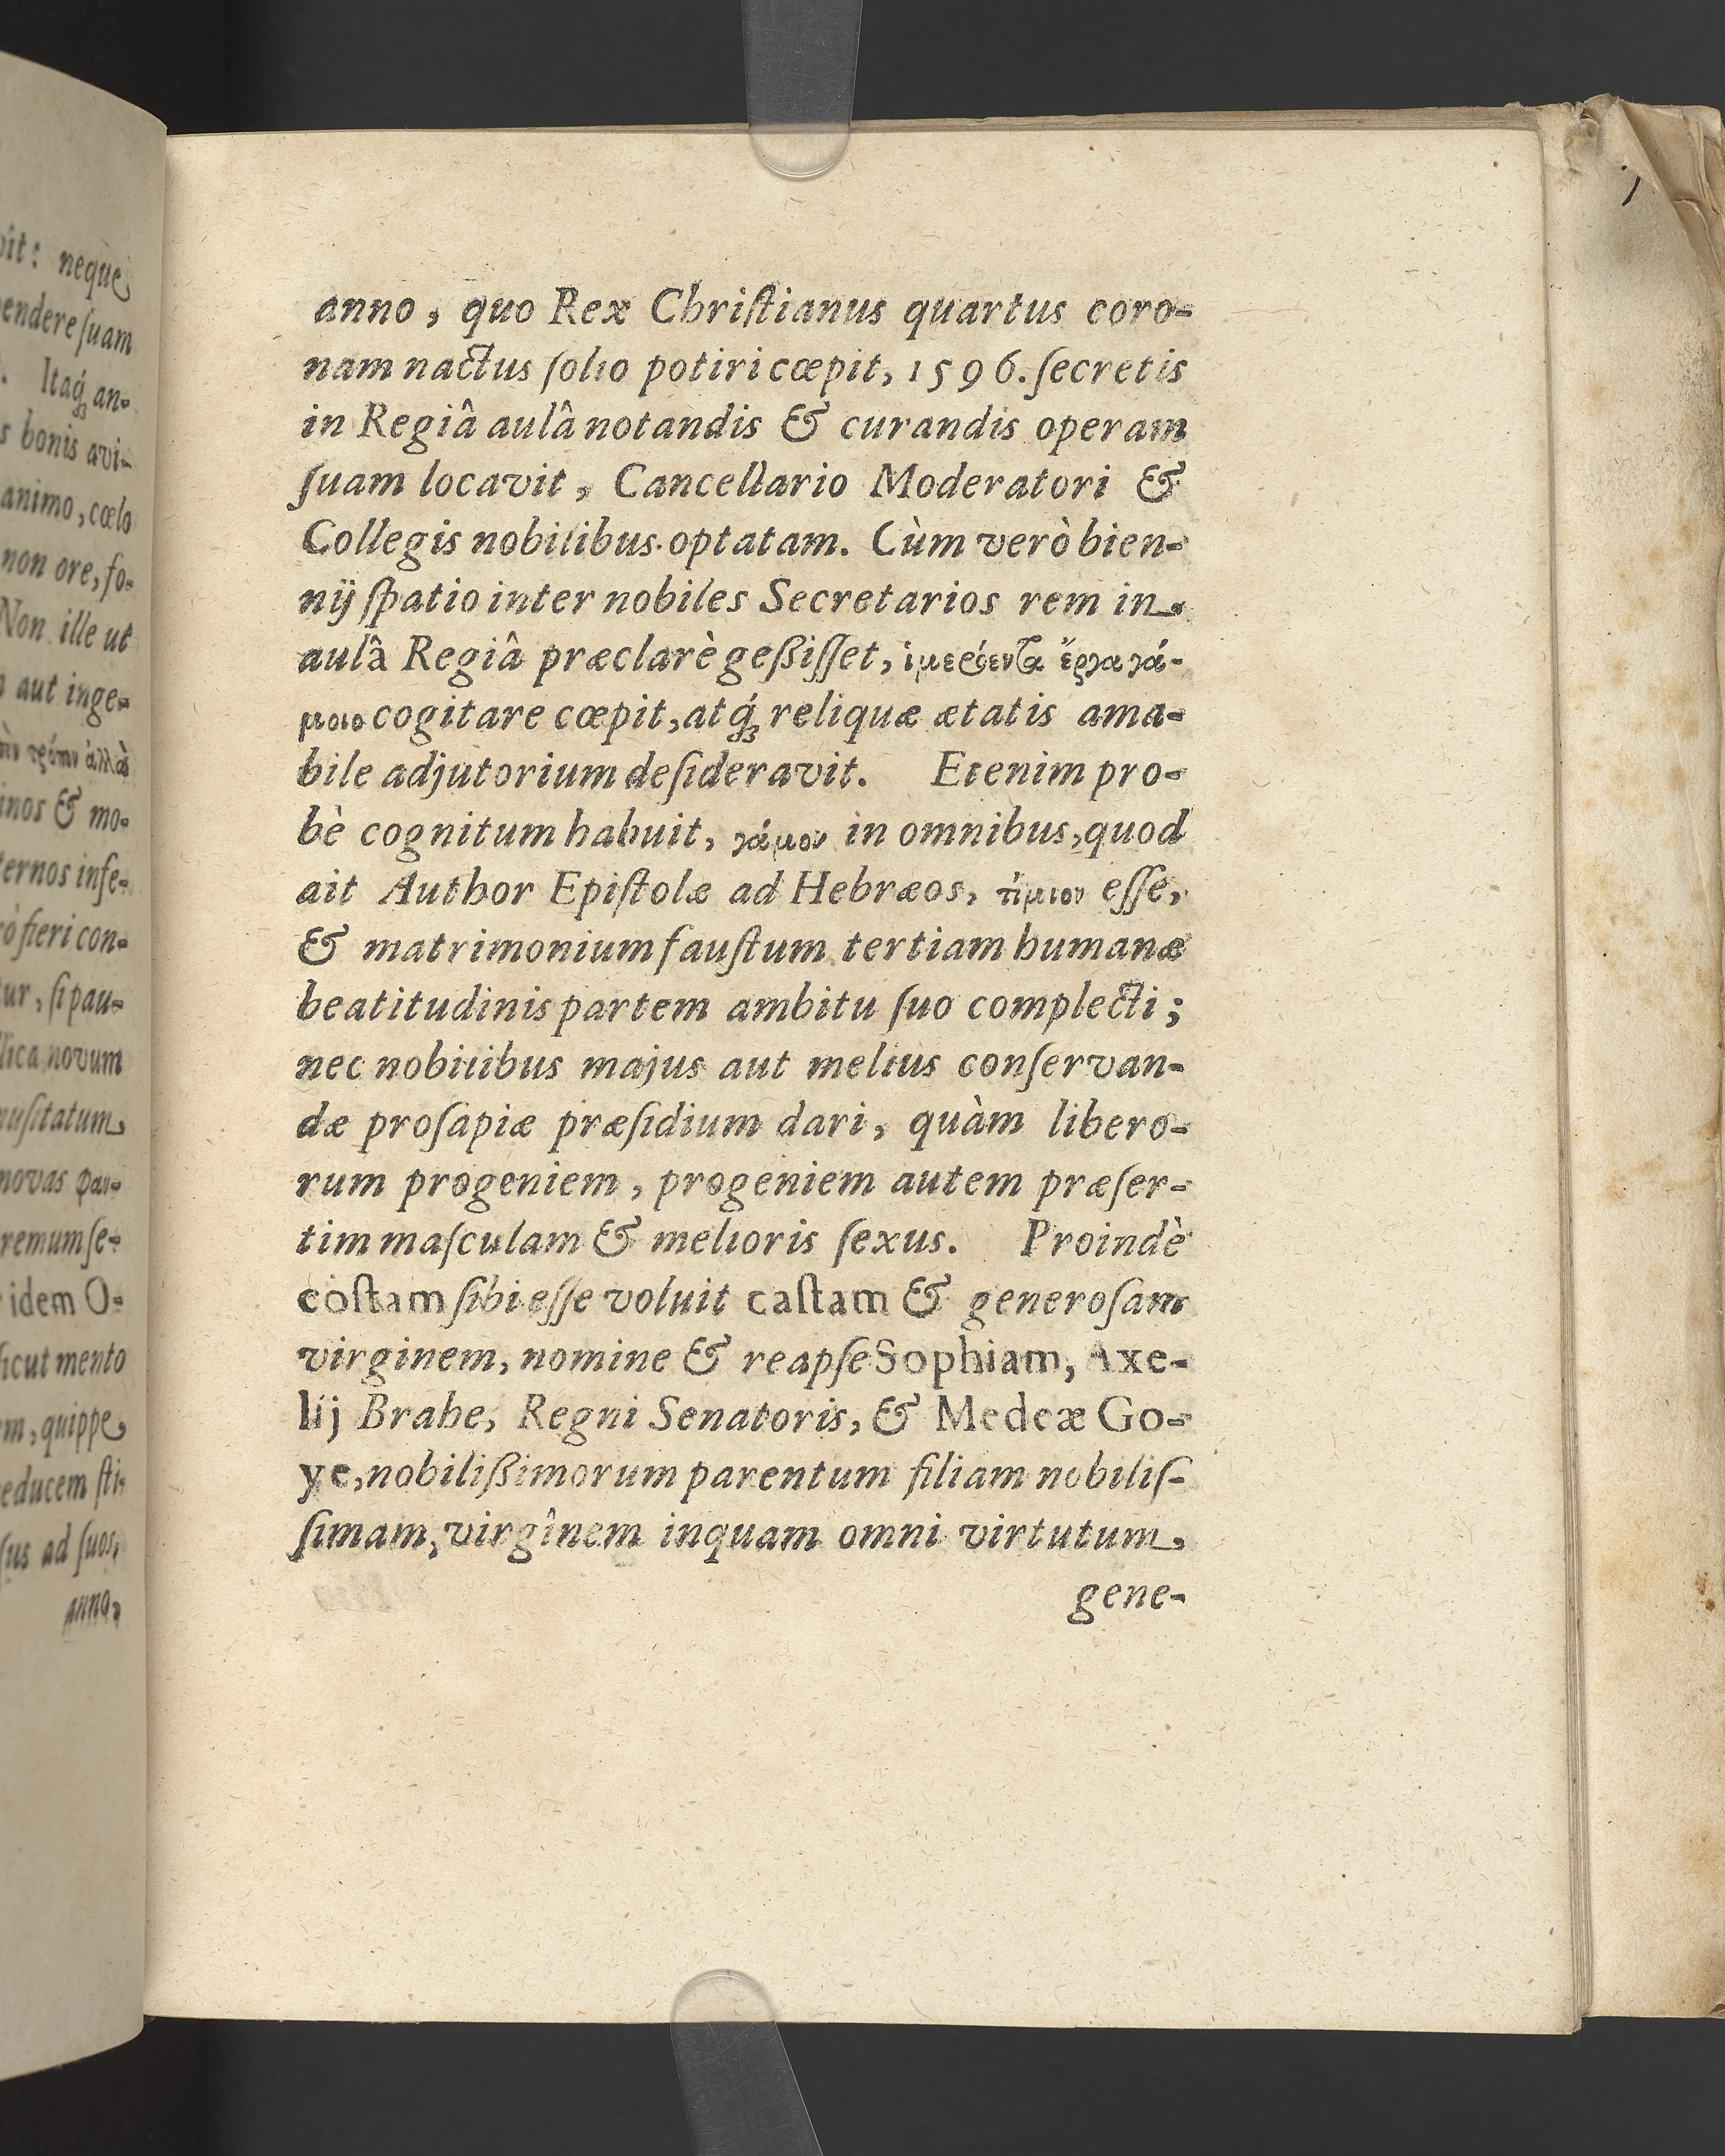 vit: neque
pendere ſuam
Itaq́ꝫ an-
s bonis avi-
animo, cœlo
non ore, fo-
Non ille ut
aut inge-
inos & mo-
ternos infe-
fieri con-
ur, ſi pau-
novum
nuſitatum
novas
remum ſe-
idem O-
ſicut mento
em, quippe
educem ſti-
ſus ad ſuos,
anno,
anno, quo Rex Chriſtianus quartus coro-
nam nactus ſolio potiri cœpit, 1596. ſecretis
in Regiâ aulâ notandis & curandis operam
ſuam locavit, Cancellario Moderatori &
Collegis nobilibus optatam. Cùm verò bien-
nij ſpatio inter nobiles Secretarios rem in
aulâ Regiâ præclarè geßiſſet, ἱμερόεντα ἔργα γά-
μοιο cogitare cœpit, atq́ꝫ reliquæ ætatis ama-
bile adjutorium deſideravit. Etenim pro-
bè cognitum habuit, γάμον in omnibus, quod
ait Author Epiſtolæ ad Hebræos, τίμιον eſſe,
& matrimonium fauſtum tertiam humanæ
beatitudinis partem ambitu ſuo complecti;
nec nobilibus majus aut melius conſervan-
dæ proſapiæ præſidium dari, quàm libero-
rum progeniem, progeniem autem præſer-
tim maſculam & melioris ſexus. Proindè
coſtam ſibi eſſe voluit caſtam & generoſam
virginem, nomine & reapſe Sophiam, Axe-
lij Brahe, Regni Senatoris, & Medeæ Go-
ye, nobilißimorum parentum filiam nobiliſ-
ſimam, virginem inquam omni virtutum,
gene-